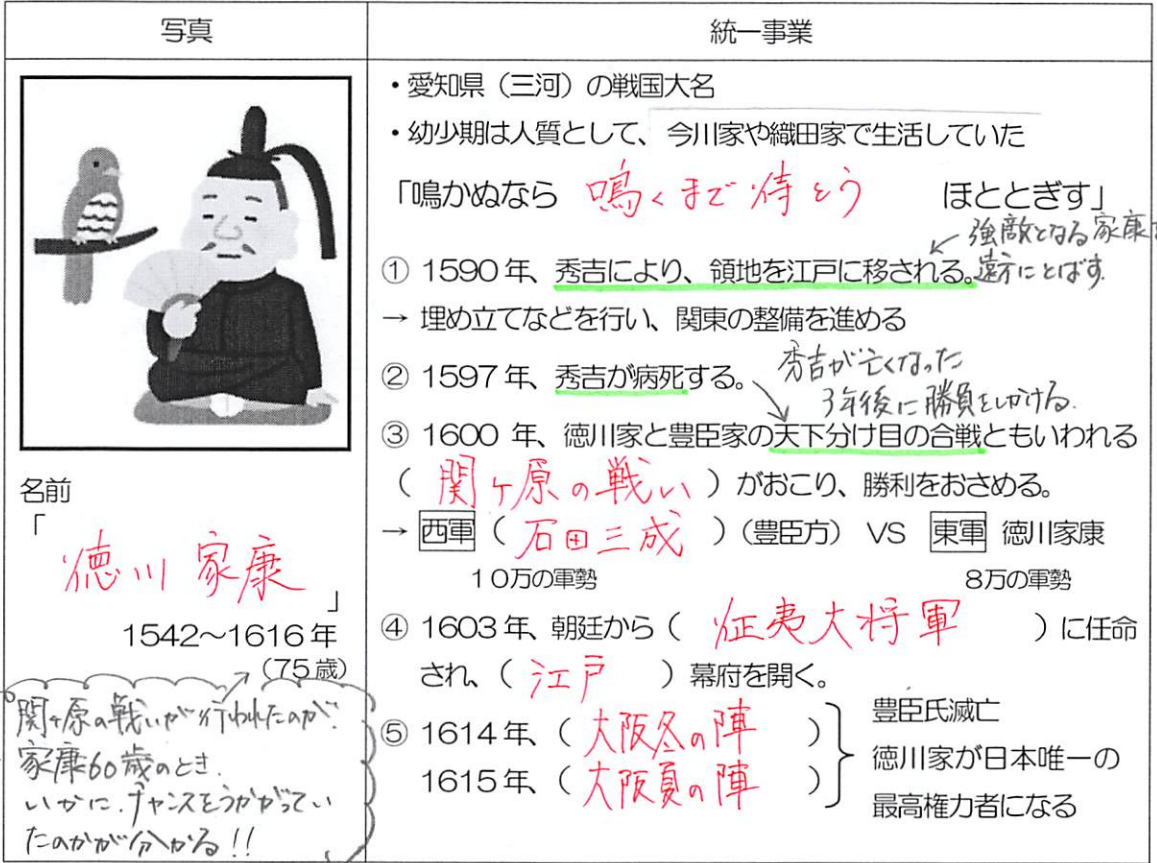 写真
名前
「
徳川家康
」
1542～1616年
(75歳)
関ヶ原の戦いが行われたのが、
家康60歳のとき.
いかに、チャンスをうかがってい
たのかが分かる!!
統一事業
・愛知県（三河）の戦国大名
・幼少期は人質として、今川家や織田家で生活していた
「鳴かぬなら 鳴くまで待とう ほととぎす」
強敵となる家康を
① 1590年、秀吉により、領地を江戸に移される。遠方にとばす.
→ 埋め立てなどを行い、関東の整備を進める
秀吉が亡くなった
② 1597年、秀吉が病死する。
3年後に勝負をしかける.
③ 1600 年、徳川家と豊臣家の天下分け目の合戦ともいわれる
（ 関ヶ原の戦い ）がおこり、勝利をおさめる。
→ 西軍（ 石田三成 ）（豊臣方） VS 東軍 徳川家康
10万の軍勢 8万の軍勢
④ 1603年、朝廷から（ 征夷大将軍 ）に任命
され、（ 江戸 ）幕府を開く。
⑤ 1614年、（ 大阪冬の陣 ）
1615年、（ 大阪夏の陣 ）
豊臣氏滅亡
徳川家が日本唯一の
最高権力者になる